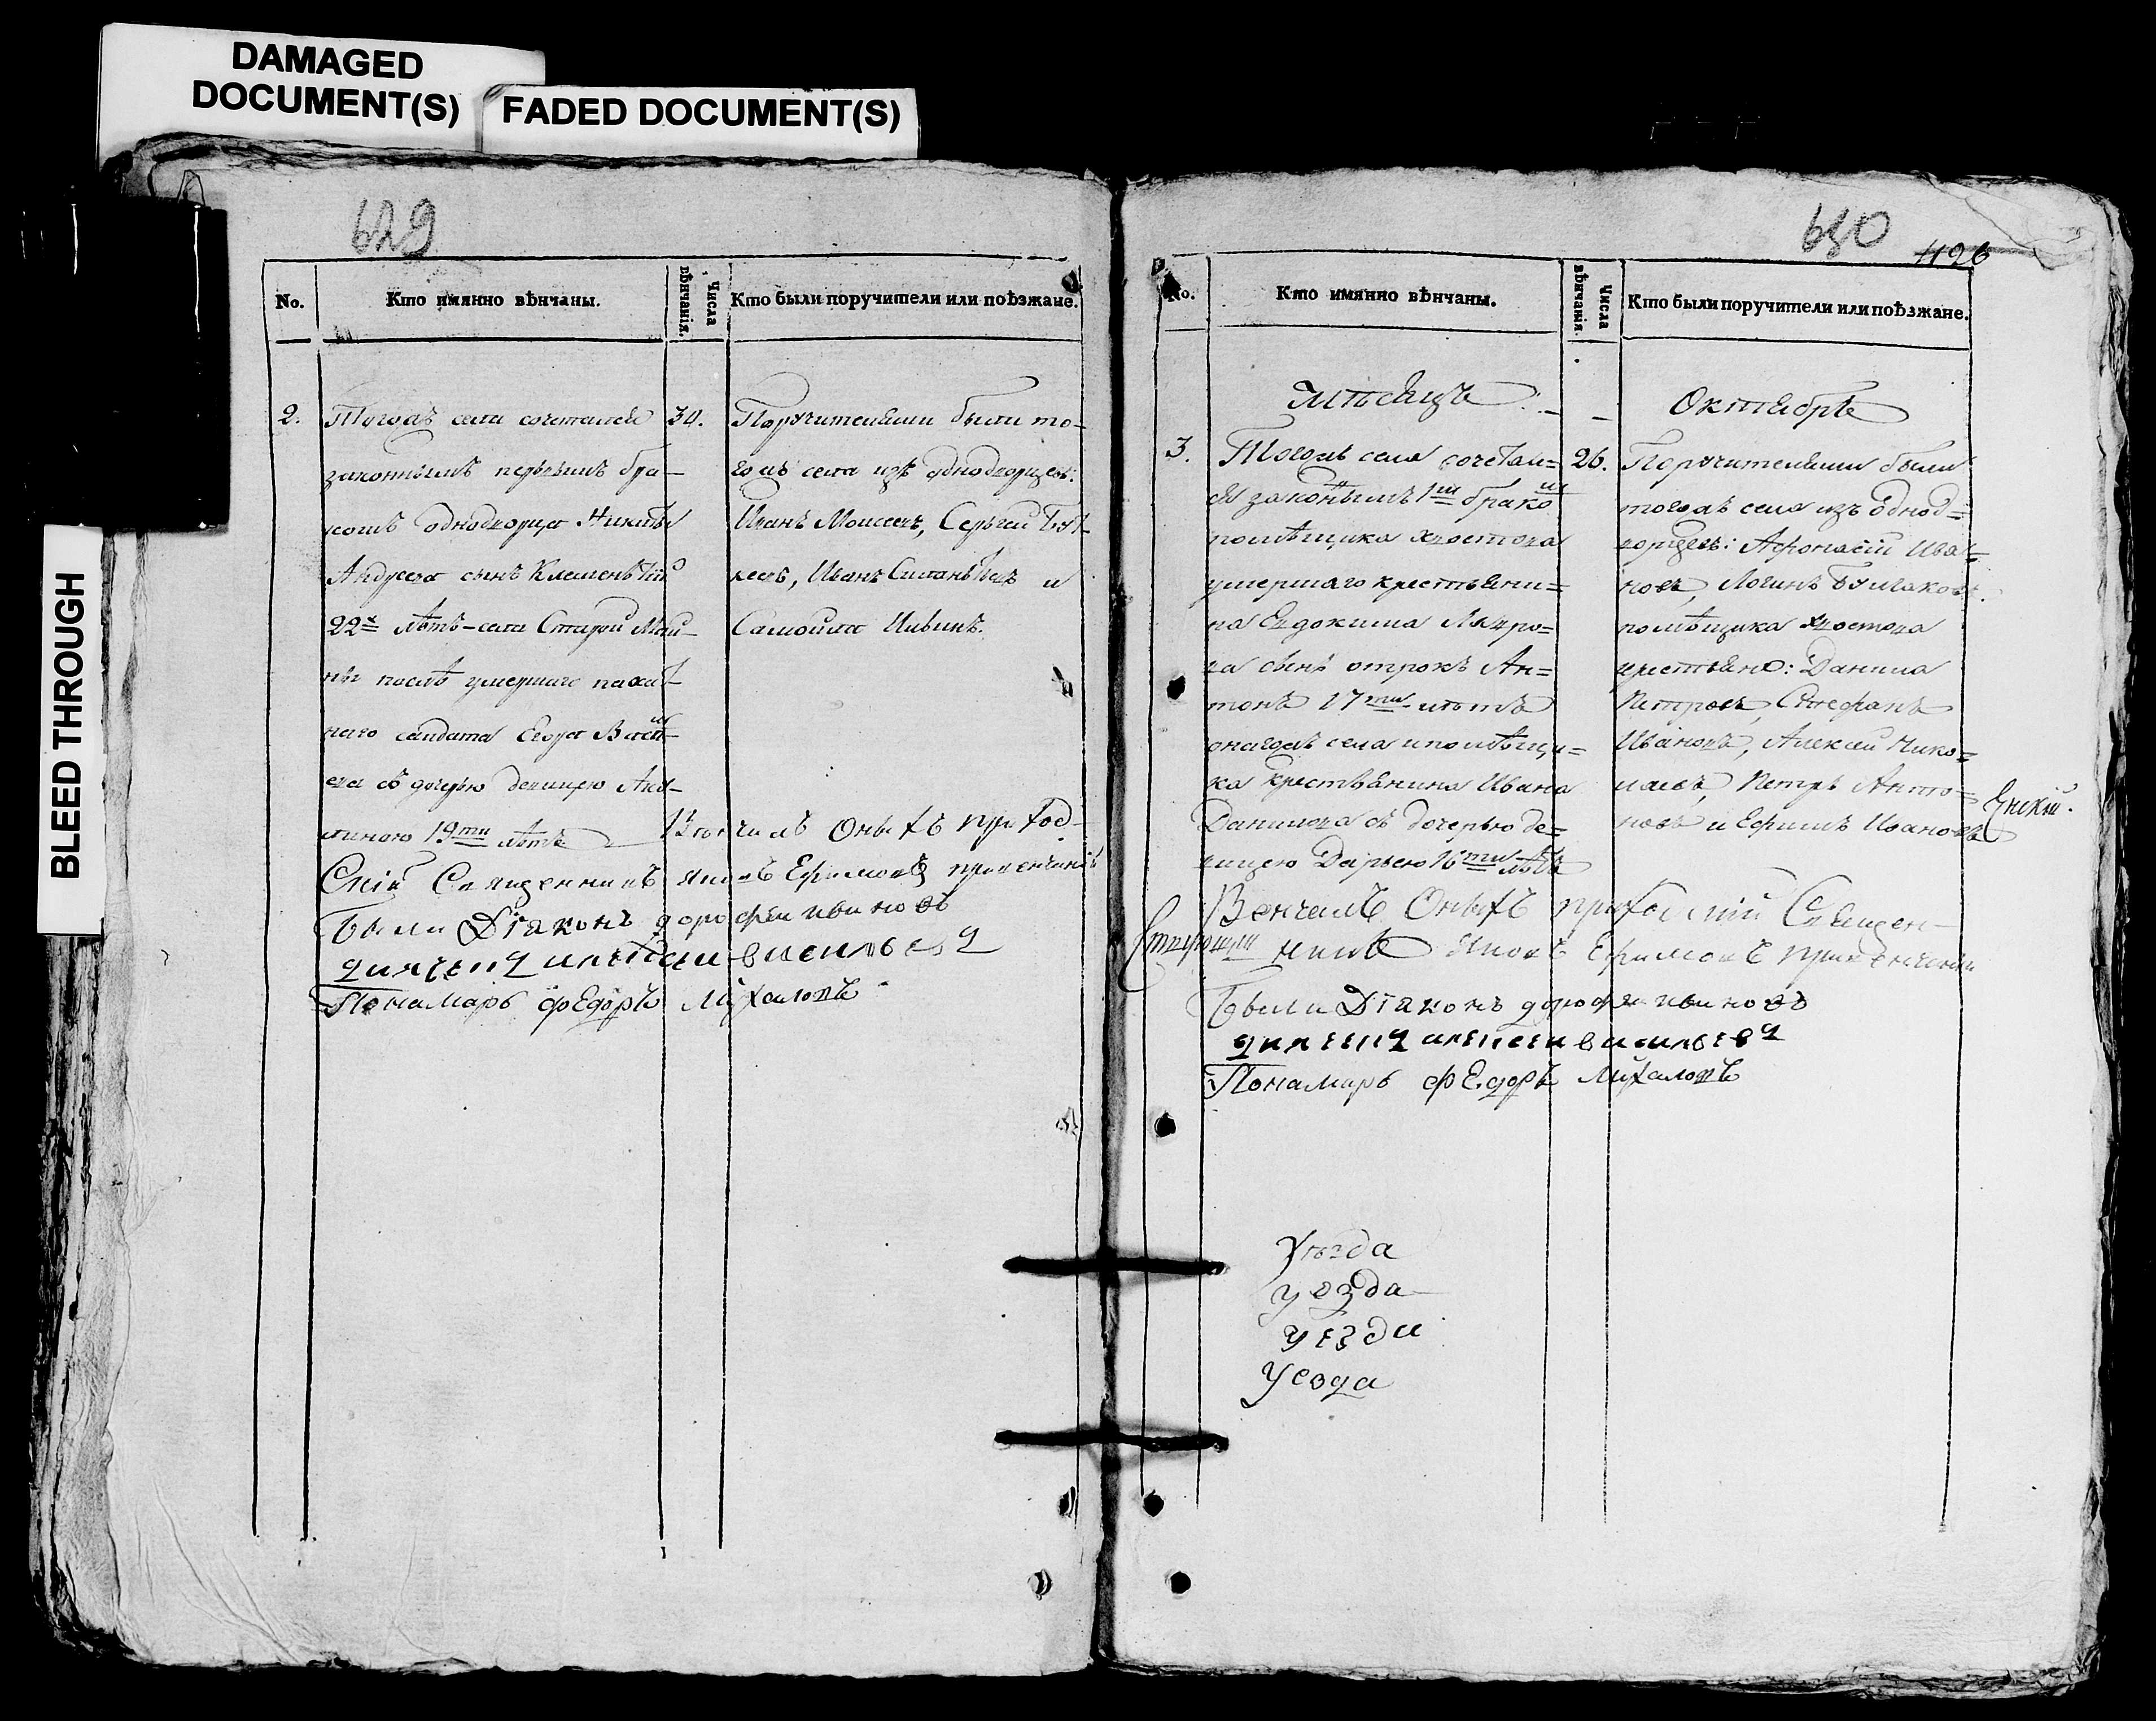 DAMAGED
DOCUMENT(S)
FADED DOCUMENT(S)
BLEED THROUGH
629
No.
Кто имянно вѣнчаны.
Числа
вѣнчанія.
Кто были поручители или поѣзжане.
2.
Тогожъ села сочетался
законнымъ первымъ бра-
комъ однодворца Никиты
сынъ Клементій
22х лѣтъ села Старой
ны послѣ умершаго
наго салдата Егора
ева съ дочерью девицею Аку-
линою 19ти лѣтъ
Поручителями были то-
гожъ села изъ однодворцевъ:
Иванъ Моисеевъ, Сергей
Иванъ и
Самойла
Венчалъ Оныхъ приход-
Скій Священникъ Яковъ Ефимовъ при венчаніи
Были Діаконъ дорофеи ивановъ
дияченъ алексеи васильевъ
Понамарь федоръ Михаиловъ
630
1126
No.
Кто имянно вѣнчаны.
Числа
вѣнчанія.
Кто были поручители или поѣзжане.
Мѣсяцъ
Октябрь
3.
Тогожъ села сочетал=
ся законнымъ 1мъ бракомъ
помѣщика Хвостова
умершаго крестьяни=
на Евдокима Лавро=
ва сынъ отрокъ Ан=
тонъ 17ти лѣтъ
онагожъ села и помѣщи=
ка крестьянина Ивана
Данилова съ дочерью де=
вицею Дарьею 16ти лѣтъ
26.
Поручителями были
тогожъ села изъ однод=
ворцевъ: Афонасій Ива=
новъ, Логинъ Булгаковъ.
помѣщика Хвостова
крестьяне: Данила
Петровъ, Стефанъ
Ивановъ, Алексей Нико=
лаевъ, Петръ Анто=
новъ и Ефимъ Ивановъ
Венчалъ Оныхъ приходскій Священ-
никъ Яковъ Ефимовъ при венчаніи
Были Діаконъ дорофеи ивановъ
дияченъ алексеи васильевъ
Понамарь федоръ Михаиловъ
уѣзда
уезда
уезда